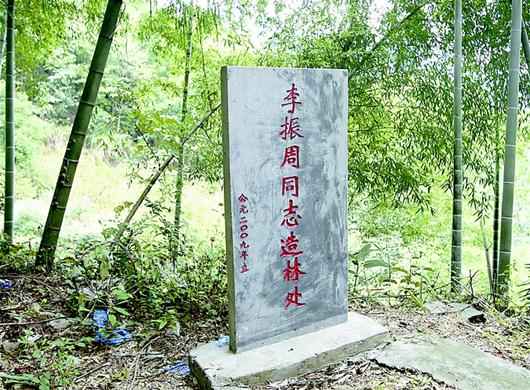 李振周同志造林处
公元二〇〇九年立